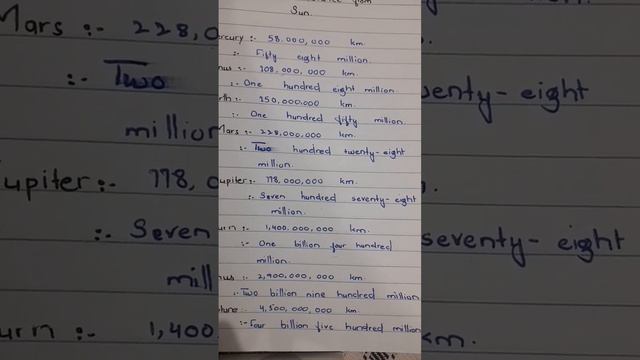 from
Sun.
rcury :- 58.000,000 km
:- Fifty eight million.
nus :- 108.000,000 km.
:- One hundred eight million.
rth :- 150,000.000 km.
:- One hundred fifty million.
Mars :- 228,000,000 km.
:- Two hundred twenty-eight
million.
upiter:- 778,000,000 km.
:- Seven hundred seventy-eight
million.
urn :- 1,400.000,000 km.
:- One billion four hundred
million.
nus :- 2,900,000,000 km.
:- Two billion nine hundred million
tune 4,500,000,000 km.
:- Four billion five hundred million
Mars :- 228,0
:- Two
million
upiter:- 778,0
:- Seven
mill
urn :- 1,400
wenty-eight
seventy-eight
km.